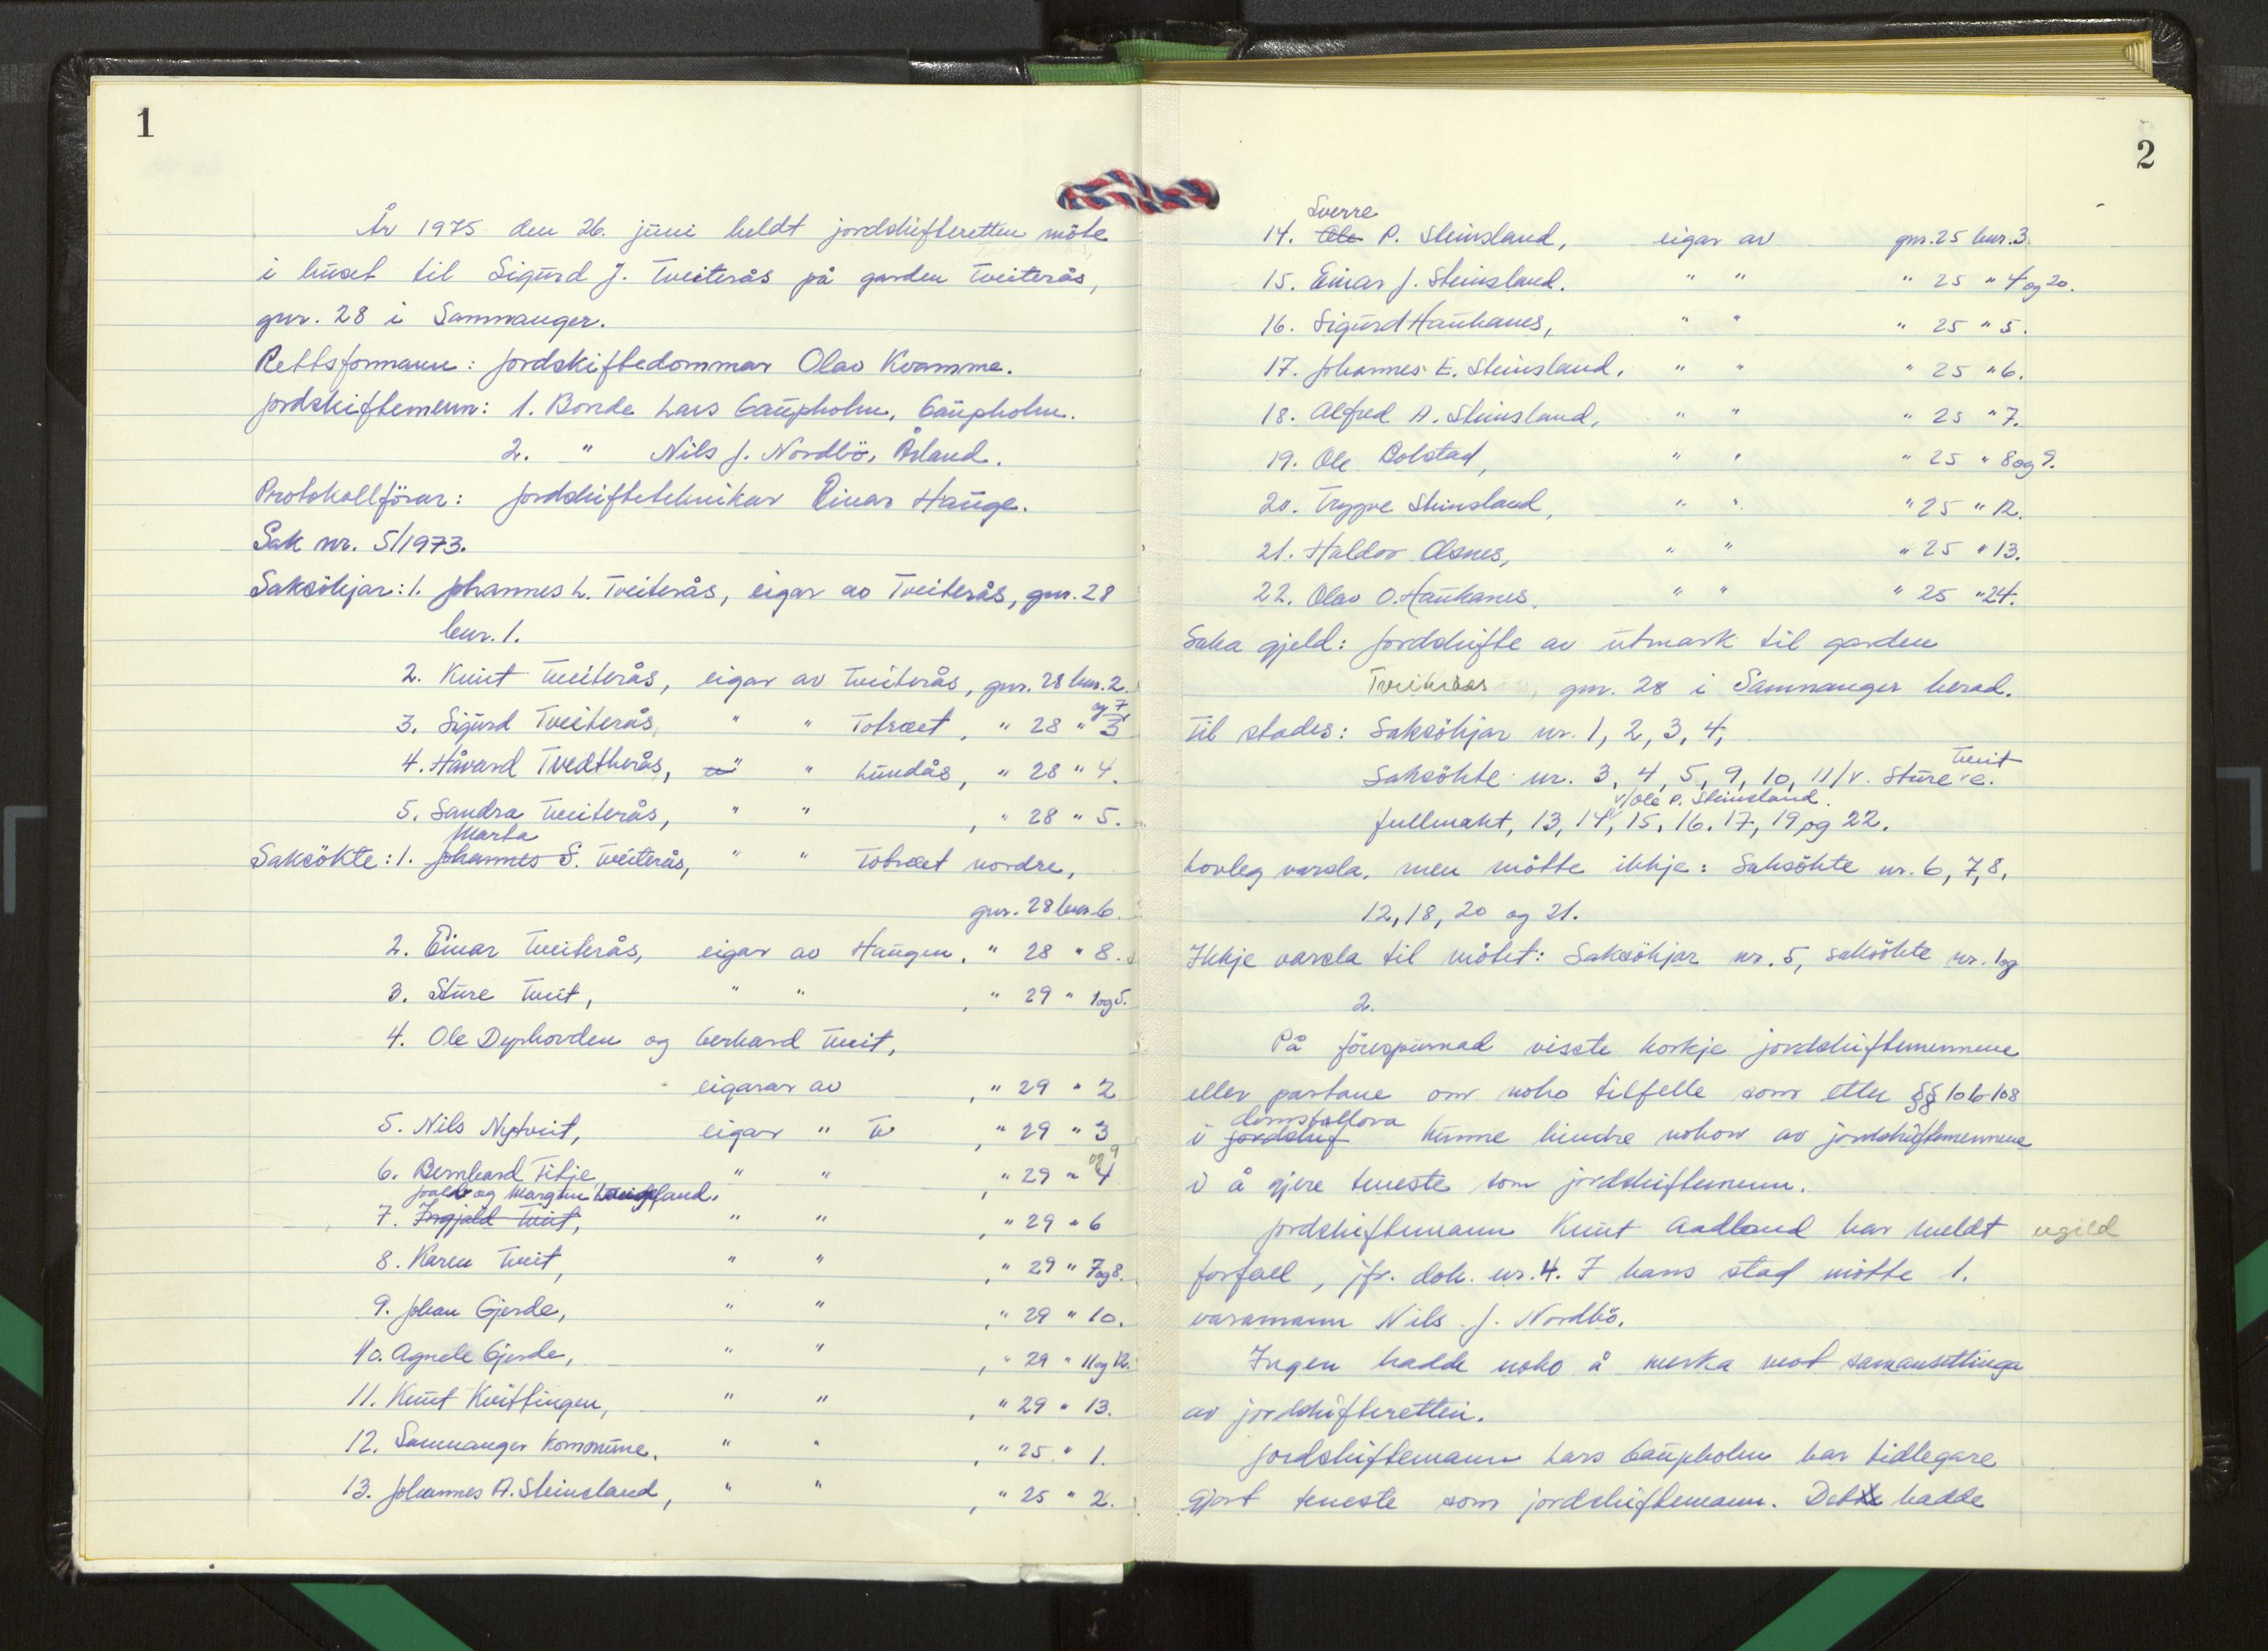 1
År 1975 den 26. juni heldt jordskifteretten möte
i huset til Sigurd J. Tveiterås på garden Tveiterås,
gnr. 28 i Samnanger.
Rettsformann: Jordskiftedommar Olav Kvamme.
Jordskiftemenn: 1. Bonde Lars Gaupholm, Gaupholm.
2. " Nils J. Nordbö, Årland.
Protokollförar: Jordskifteteknikar Einar Hauge.
Sak nr. 5/1973.
Saksökjar: 1. Johannes L. Tveiterås, eigar av Tveiterås, gnr. 28
bnr. 1.
2. Knut Tveiterås, eigar av Tveiterås, gnr. 28 bnr. 2.
og 7
3. Sigurd Tveiterås, " " Totræet, " 28 " 3
4. Håvard Tvedtherås, " " Lundås, " 28 " 4.
5. Sandra Tveiterås, " " , " 28 " 5.
Marta
Saksökte: 1. Johannes S. Tveiterås, " " Totræet nordre,
gnr. 28 bnr 6.
2. Einar Tveiterås, eigar av Haugen, " 28 " 8.
3. Sture Tveit, " " , " 29 " 1 og 5.
4. Ole Dyphovden og Gerhard Tveit,
eigarar av , " 29 " 2
5. Nils Nytveit, eigar " , " 29 " 3
og 9
6. Bernhard Titje " " , " 29 " 4
og Margun
7. Ingjald Tveit, " " , " 29 " 6
8. Karen Tveit, " " , " 29 " 7 og 8.
9. Johan Gjerde, " " , " 29 " 10.
10. Agnete Gjerde, " " , " 29 " 11 og 12.
11. Knut Kvittingen, " " , " 29 " 13.
12. Samnanger kommune, " " , " 25 " 1.
13. Johannes A. Steinsland, " " , " 25 " 2.
2
Sverre
14. Ole P. Steinsland, eigar av gnr. 25 bnr. 3
15. Einar J. Steinsland. " " " 25 " 4 og 20.
16. Sigurd Haukanes, " " " 25 " 5.
17. Johannes E. Steinsland, " " " 25 " 6.
18. Alfred A. Steinsland, " " " 25 " 7.
19. Ole Bolstad, " " " 25 " 8 og 9.
20. Trygve Steinsland, " " " 25 " 12.
21. Haldor Aksnes, " " " 25 " 13.
22. Olav O. Haukanes, " " " 25 " 24.
Saka gjeld: Jordskifte av utmark til garden
Tveiterås, gnr. 28 i Samnanger herad.
Til stades: Saksökjar nr. 1, 2, 3, 4,
Tveit
Saksökte nr. 3, 4, 5, 9, 10, 11/v. Sture e.
v/Ole P. Steinsland.
fullmakt, 13, 14, 15, 16. 17, 19 og 22.
Lovleg varsla, men mötte ikkje: Saksökte nr. 6, 7, 8,
12, 18, 20 og 21.
Ikkje varsla til mötet: Saksökjar nr. 5, saksökte nr. 1 og
2.
På förespurnad visste korkje jordskiftemennene
eller partane om noko tilfelle som etter §§ 106-108
domstollova
i jordskif kunne hindre nokon av jordskiftemennene
i å gjere teneste som jordskiftemenn.
Jordskiftemann Knut Aadland har meldt ugild
forfall, jfr. dok. nr. 4. I hans stad mötte 1.
varamann Nils J. Nordbö.
Ingen hadde noko å merka mot samansettinga
av jordskifteretten.
Jordskiftemann Lars Gaupholm har tidlegare
gjort teneste som jordskiftemann. Dette hadde